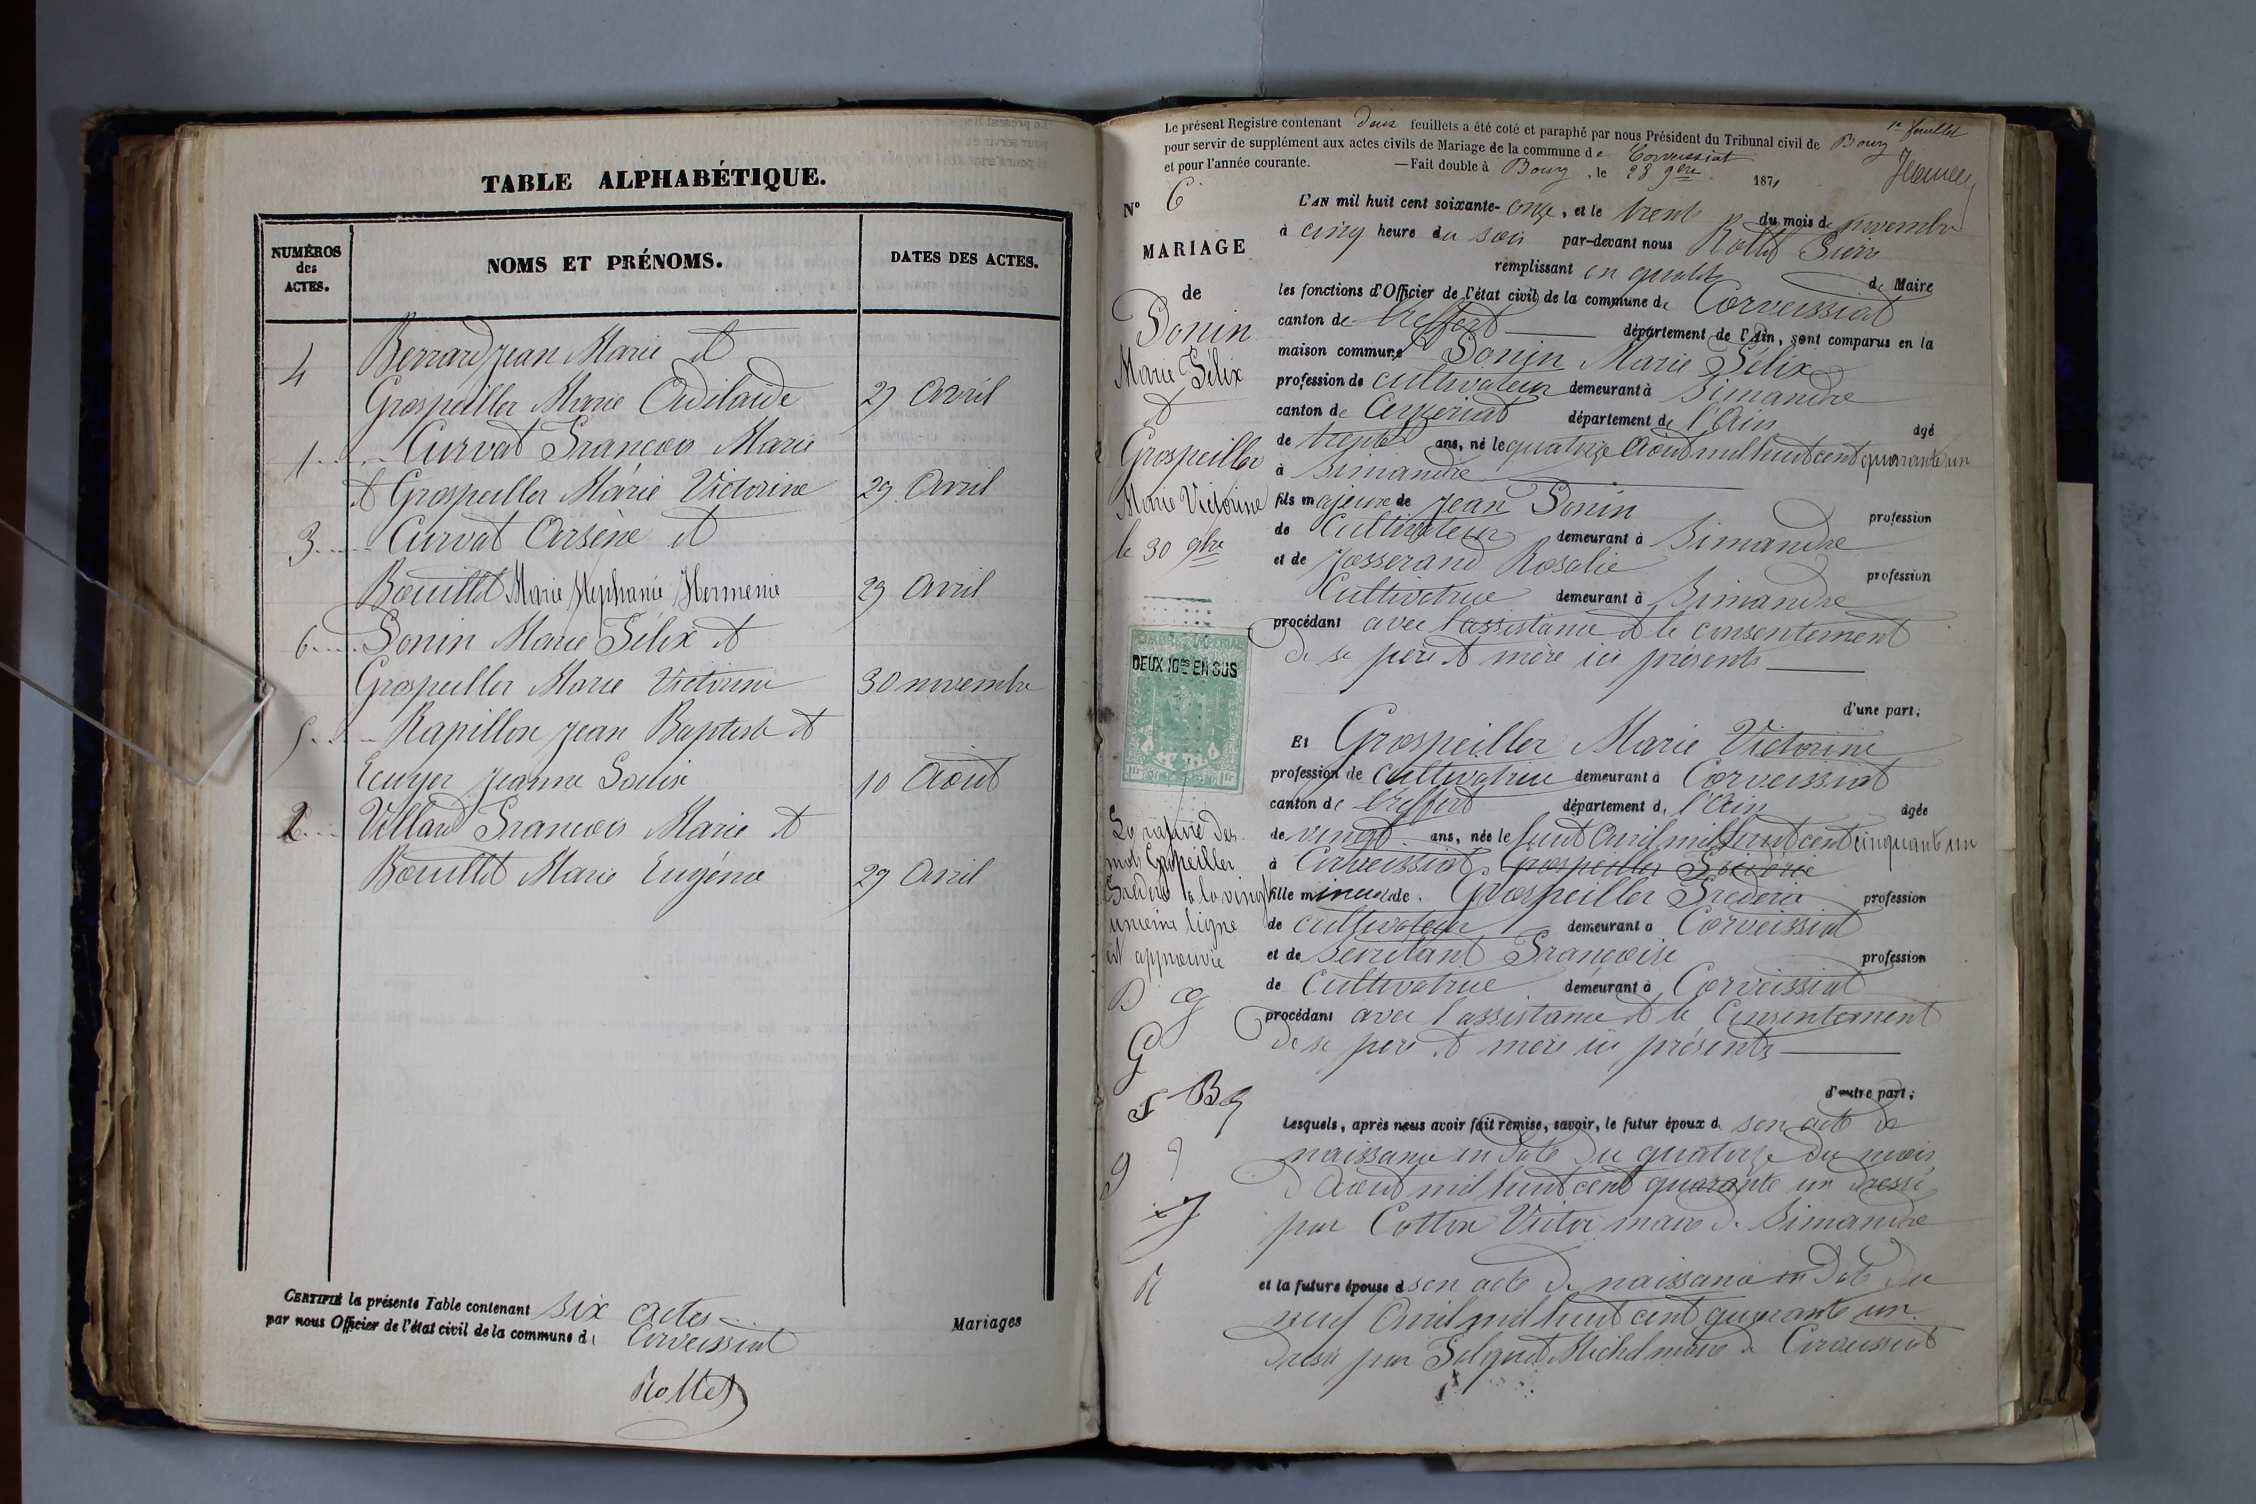 TABLE ALPHABÉTIQUE.
NUMÉROS des ACTES.
NOMS ET PRÉNOMS.
DATES DES ACTES.
4 Berrard Jean Marie et
Grospeiller Marie Adilaïde 29 Avril
1 Curvat François Marie
et Grospeiller Marie Victorine 29 Avril
3 Curvat Arsène et
Bouillet Marie Stephanie Hermenie 29 Avril
6 Donin Marie Félix et
Grospeiller Marie Victorine 30 novembre
5 Rapillon Jean Baptiste et
Ecuyer Jeanne Louise 10 Août
2 Villard François Marie et
Bouillet Marie Eugénie 29 Avril
CERTIFIÉ la présente Table contenant six actes
par nous Officier de l'état civil de la commune de Corveissiat
Mariages
Rollet
1er feuillet
Le présent Registre contenant deux feuillets a été coté et paraphé par nous Président du Tribunal civil de Bourg
pour servir de supplément aux actes civils de Mariage de la commune de Corveissiat
et pour l'année courante. — Fait double à Bourg, le 28 9bre 1871
N° 6
MARIAGE
de
Donin
Marie Félix
et
Grospeiller
Marie Victorine
le 30 9bre
DEUX 10es EN SUS
La rature des
mots Grospeiller
Frederic à la vingt
unieme ligne
est approuvée
L'AN mil huit cent soixante-onze, et le trente du mois de novembre
à cinq heure du soir par-devant nous Rollet Pierre
remplissant en qualité de Maire
les fonctions d'Officier de l'état civil de la commune de Corveissiat
canton de Treffort département de l'Ain, sont comparus en la
maison commune Donin Marie Félix
profession de cultivateur demeurant à Simandre
canton de Ceyzeriat département de l'Ain âgé
de trente ans, né le quatorze Août mil huit cent quarante un
à Simandre
fils majeur de Jean Donin profession
de Cultivateur demeurant à Simandre
et de Josserand Rosalie profession
Cultivatrice demeurant à Simandre
procédant avec l'assistance et le consentement
de se père et mère ici présents
d'une part;
Et Grospeiller Marie Victorine
profession de cultivatrice demeurant à Corveissiat
canton de Treffort département de l'Ain âgée
de vingt ans, née le huit Avril mil huit cent cinquante un
à Corveissiat Grospeiller Frederic
fille mineure de Grospeiller Frederic profession
de cultivateur demeurant à Corveissiat
et de Secretant Françoise profession
de Cultivatrice demeurant à Corveissiat
procédant avec l'assistance et le Consentement
de se père et mère ici présents
d'autre part;
Lesquels, après nous avoir fait remise, savoir, le futur époux d son acte de
naissance en date du quatorze du mois
d'Aout mil huit cent quarante un dressé
par Cotton Victor maire de Simandre
et la future épouse d son acte de naissance en date du
neuf Avril mil huit cent quarante un
dressé par Michel maire de Corveissiat